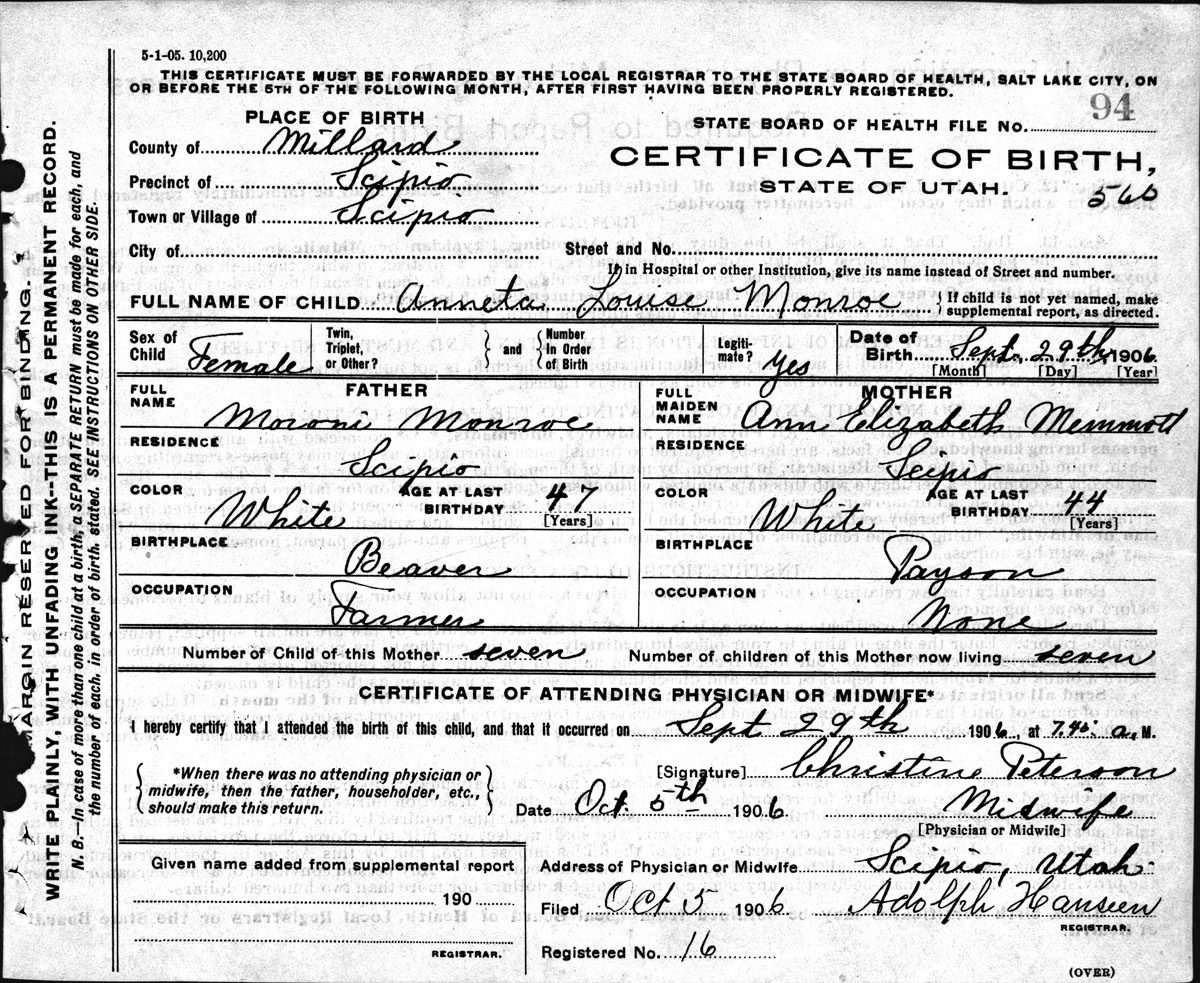 5-1-05. 10,200
THIS CERTIFICATE MUST BE FORWARDED BY THE LOCAL REGISTRAR TO THE STATE BOARD OF HEALTH, SALT LAKE CITY, ON
OR BEFORE THE 5TH OF THE FOLLOWING MONTH, AFTER FIRST HAVING BEEN PROPERLY REGISTERED.
PLACE OF BIRTH
STATE BOARD OF HEALTH FILE No. 94
County of Millard
CERTIFICATE OF BIRTH,
Precinct of Scipio
STATE OF UTAH. 560
Town or Village of Scipio
City of Street and No.
If in Hospital or other Institution, give its name instead of Street and number.
FULL NAME OF CHILD Anneta Louise Monroe { If child is not yet named, make
supplemental report, as directed.
Sex of Child Female
Twin, Triplet, or Other? } and { Number In Order of Birth
Legiti-mate? Yes
Date of Birth Sept. 29th, 1906
[Month] [Day] [Year]
FATHER
FULL NAME Moroni Monroe
RESIDENCE
Scipio
COLOR White AGE AT LAST BIRTHDAY 47
[Years]
BIRTHPLACE
Beaver
OCCUPATION
Farmer
MOTHER
FULL MAIDEN NAME Ann Elizabeth Memmott
RESIDENCE
Scipio
COLOR White AGE AT LAST BIRTHDAY 44
[Years]
BIRTHPLACE
Payson
OCCUPATION
None
Number of Child of this Mother seven Number of children of this Mother now living seven
CERTIFICATE OF ATTENDING PHYSICIAN OR MIDWIFE*
I hereby certify that I attended the birth of this child, and that it occurred on Sept 29th 1906, at 7.45. a. M.
{ *When there was no attending physician or
midwife, then the father, householder, etc.,
should make this return. }
[Signature] Christine Peterson
Date Oct. 5th 1906 Midwife
[Physician or Midwife]
Given name added from supplemental report
190
REGISTRAR.
Address of Physician or Midwife Scipio, Utah
Filed Oct 5 1906 Adolph Hanseen
REGISTRAR.
Registered No. 16
(OVER)
MARGIN RESERVED FOR BINDING.
WRITE PLAINLY, WITH UNFADING INK--THIS IS A PERMANENT RECORD.
N. B.—In case of more than one child at a birth, a SEPARATE RETURN must be made for each, and
the number of each, in order of birth, stated. SEE INSTRUCTIONS ON OTHER SIDE.